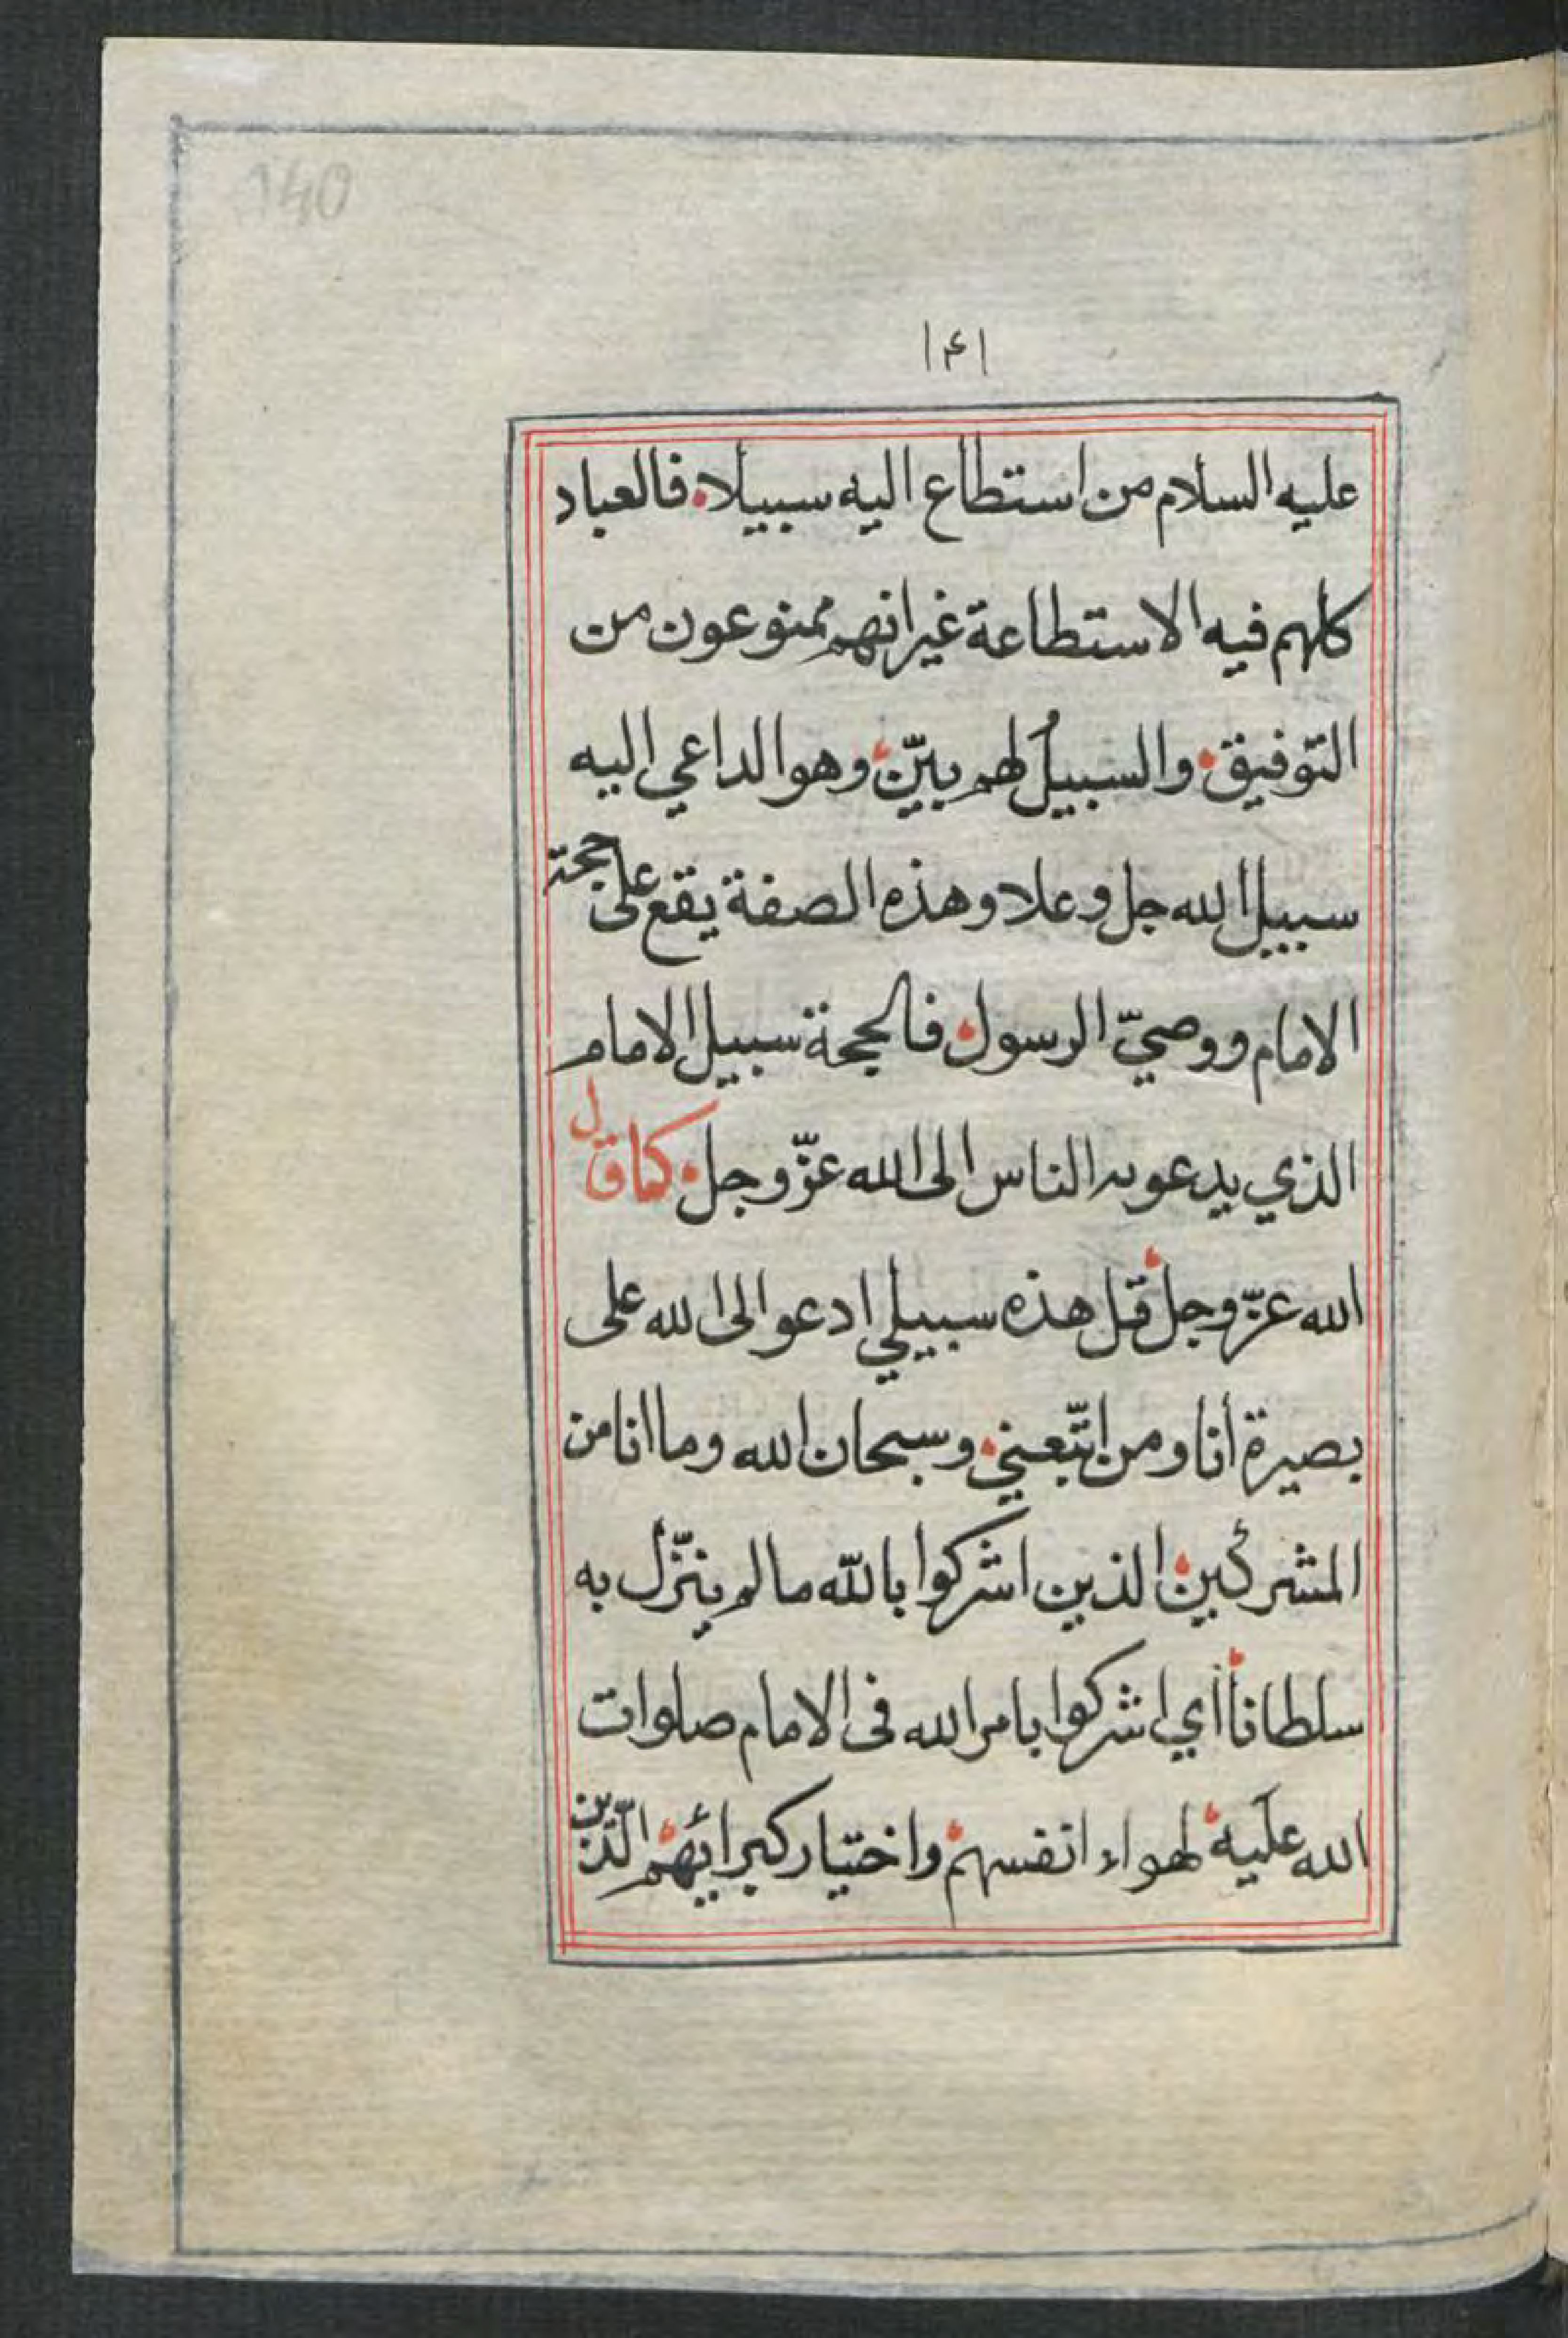 140
١۴١
عليه السلام من استطاع اليه سبيلا فالعباد
كلهم فيه الاستطاعة غير انهم ممنوعون من
التّوفيق والسبيل لهم بيّن وهو الداعي اليه
سبيل الله جل وعلا وهذه الصفة يقع على حجة
الامام ووصيّ الرسول فالحجة سبيل الامام
الذي يدعو به الناس الى الله عزّ وجل كما قال
الله عزّ وجل قل هذه سبيلي ادعو الى الله على
بصيرة أنا ومن اتّبعني وسبحان الله وما انا من
المشركين الذين اشركوا بالله ما لم ينزّل به
سلطاناً اي اشركوا بامر الله فى الامام صلوات
الله عليه لهواء انفسهم واختيار كبرائهم الّذين